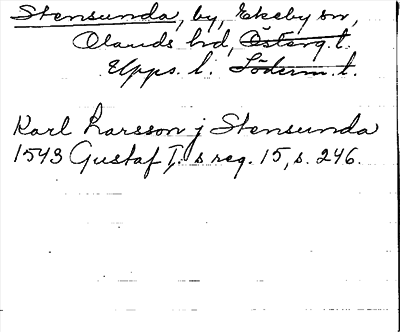 Stensunda, by, Ekeby sn,
Olands hd, Österg. l.
Upps. l. Söderm. l.
Karl Larsson j Stensunda
1543 Gustaf I:s reg. 15, s. 246.